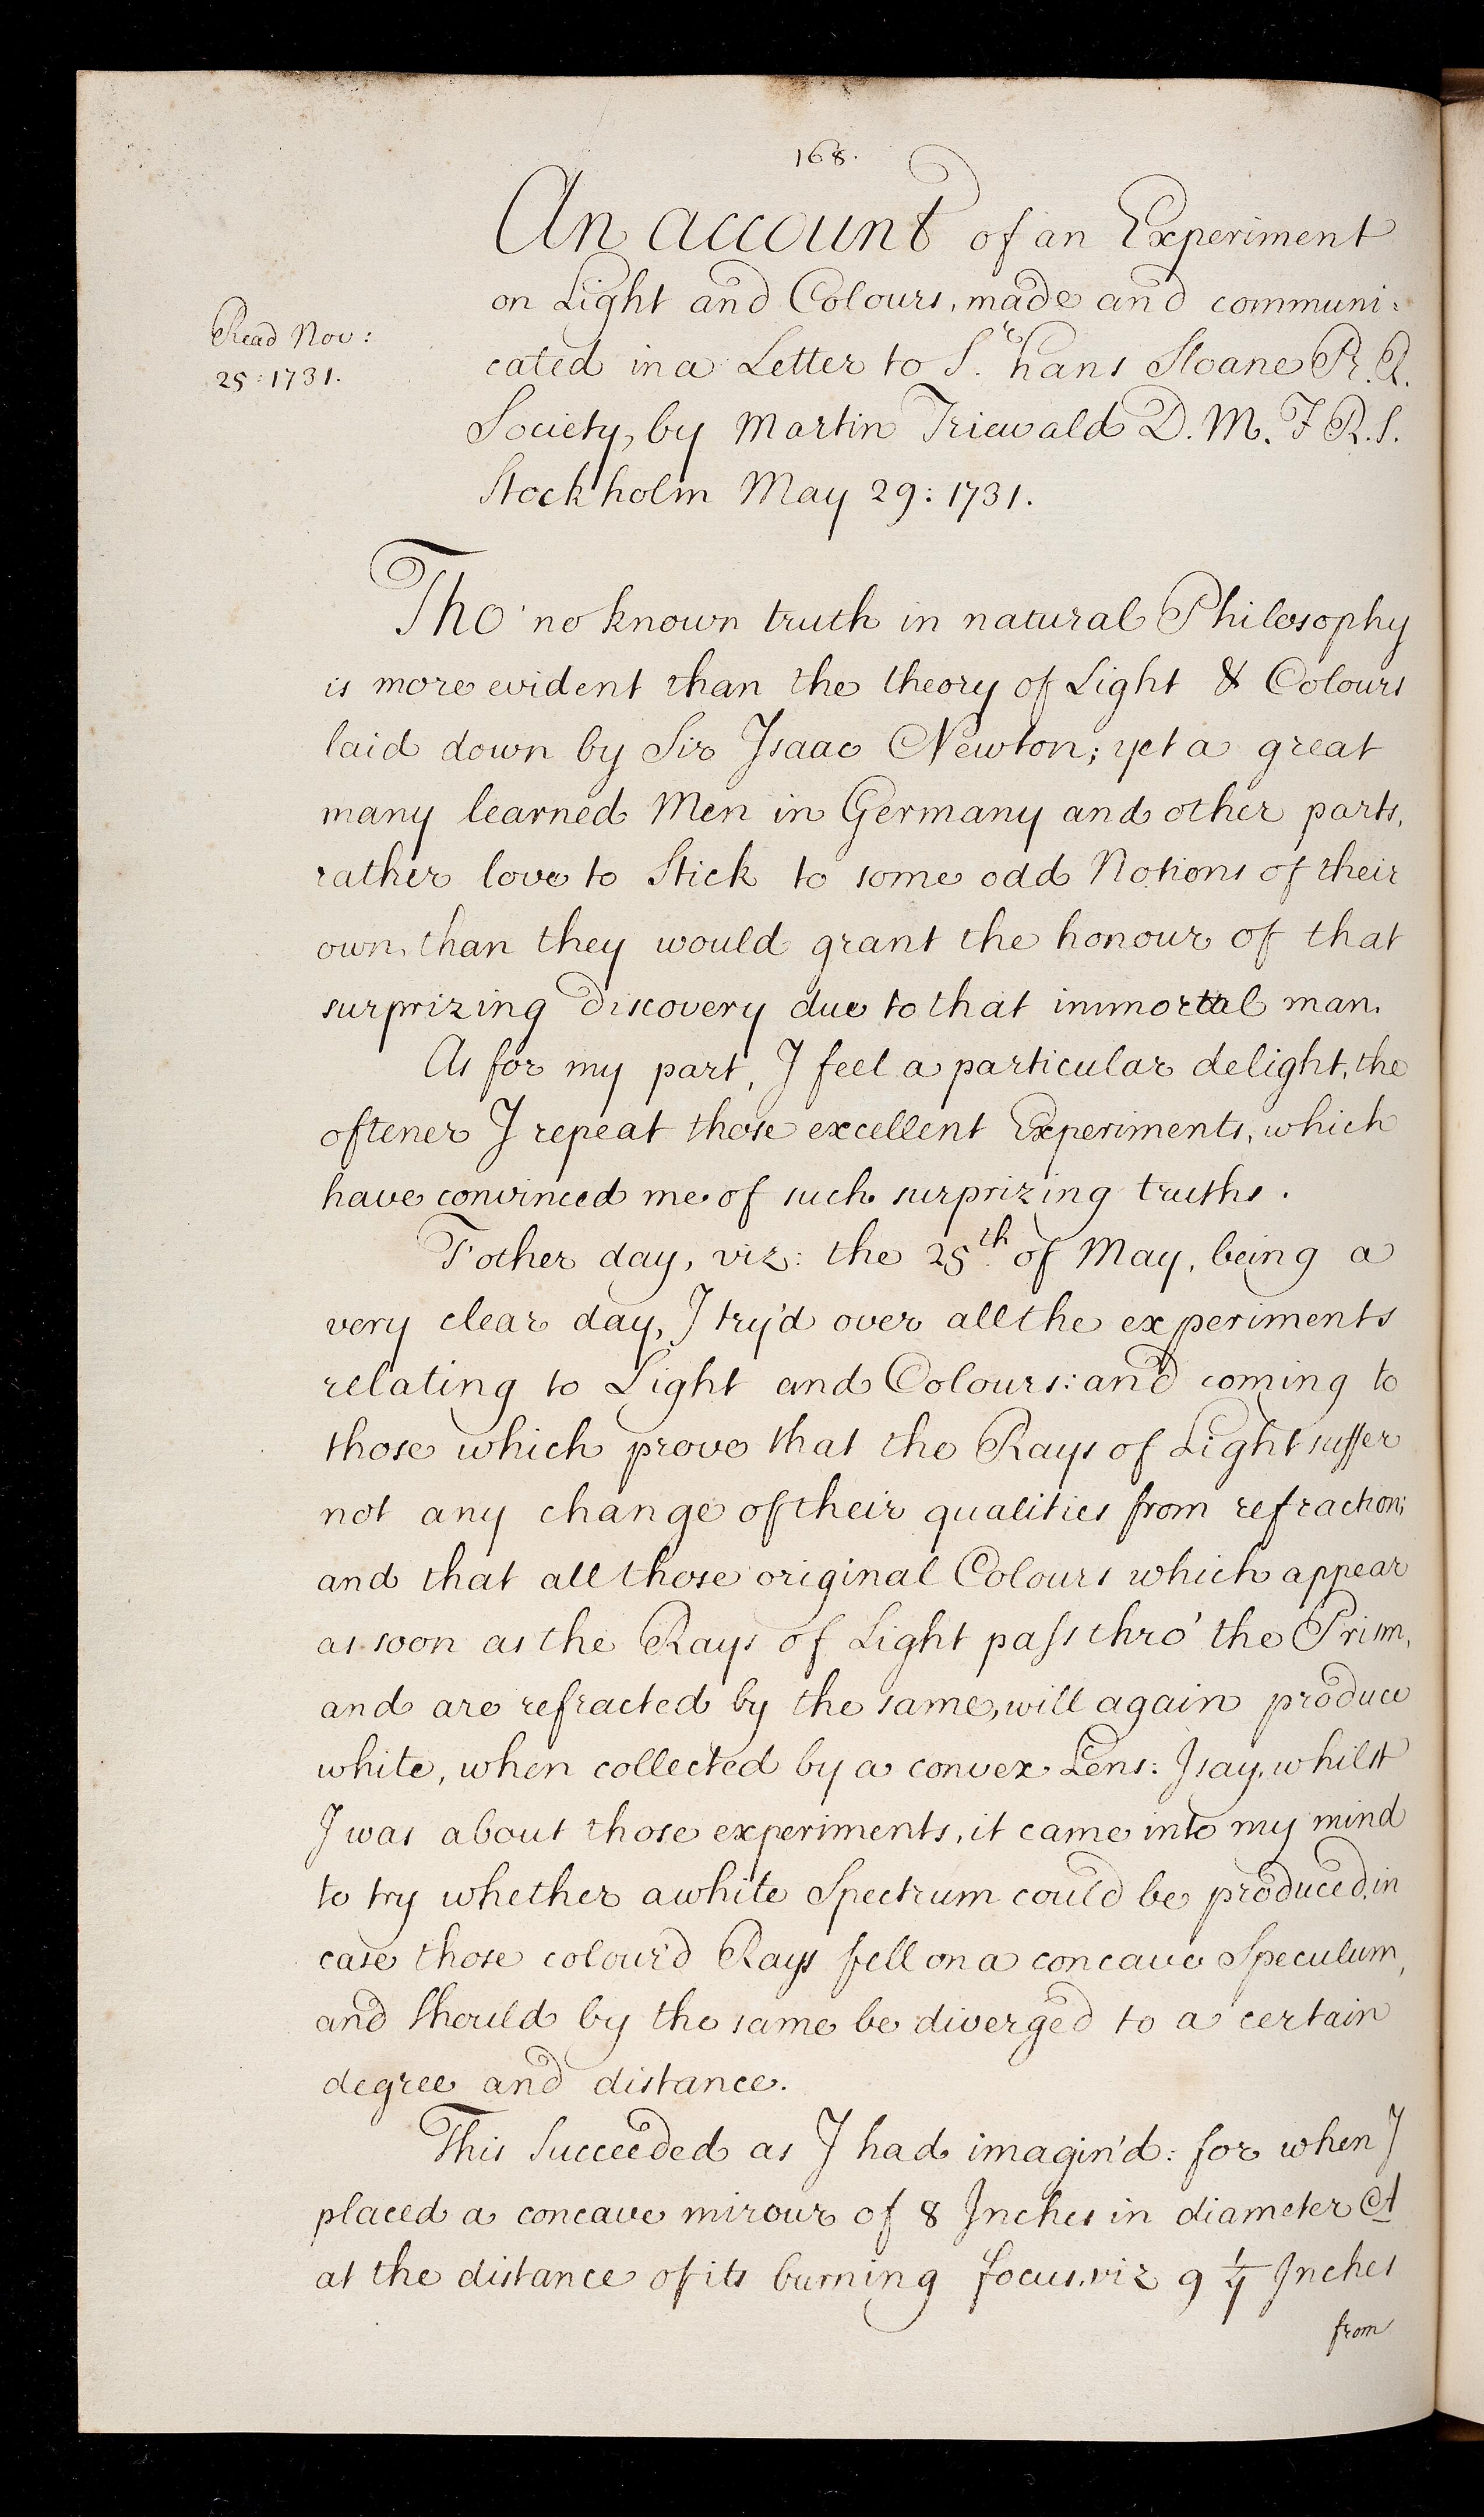 168.
An account of an Experiment
on Light and Colours, made and communi:
Read Nov:
25: 1731.
cated in a Letter to S.r hans Sloane P. R.
Society, by Martin Triewald D. M. F R. S.
Stockholm May 29: 1731.
Tho' no known truth in natural Philosophy
is more evident than the theory of Light & Colours
laid down by Sir Isaac Newton; yet a great
many learned Men in Germany and other parts,
rather love to Stick to some odd Notions of their
own, than they would grant the honour of that
surprizing discovery due to that immortal man.
As for my part, I feel a particular delight, the
oftener I repeat those excellent Experiments, which
have convinced me of such surprizing truths.
T'other day, viz: the 25th of May, being a
very clear day, I try'd over all the experiments
relating to Light and Colours: and coming to
those which prove that the Rays of Light suffer
not any change of their qualities from refraction;
and that all those original Colours which appear
as soon as the Rays of Light paſs thro' the Prism,
and are refracted by the same, will again produce
white, when collected by a convex Lens: I say, whilst
I was about those experiments, it came into my mind
to try whether a white Spectrum could be produced, in
case those colour'd Rays fell on a concave Speculum,
and should by the same be diverged to a certain
degree and distance.
This Succeeded as I had imagin'd: for when I
placed a concave mirour of 8 Inches in diameter A
at the distance of its burning focus, viz 9 1/4 Inches
from